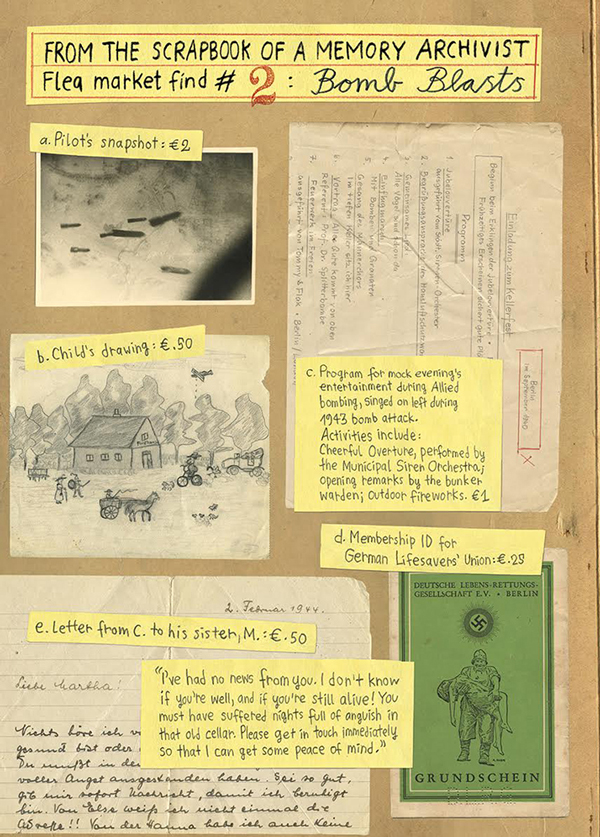 FROM THE SCRAPBOOK OF A MEMORY ARCHIVIST
Flea market find # 2: Bomb Blasts
a. Pilot's snapshot: €2
Einladung zum Kellerfest
Beginn beim Erklingen der Jubelouvertüre •
Frühzeitiges Erscheinen sichert gute Plä
Programm
1. Jubelouvertüre
ausgeführt vom Städt. Sirenen-Orchester
2. Begrüßungsansprache des Hausluftschutzwar
3. Gemeinsames
Alle Vögel sind schon da
4.
Mit Bomben und Granaten
5. Gesang des Männerchors
Im tiefen Keller sitz ich hier
6. Vortrag: Alles Gute kommt von oben
Referent: Prof. Dr. Splitterbombe
7. Feuerwerk im Freien
ausgeführt von Tommy & Flak • Berlin/
Berlin
im September 1940
b. Child's drawing: €.50
c. Program for mock evening's
entertainment during Allied
bombing, singed on left during
1943 bomb attack.
Activities include:
Cheerful Overture, performed by
the Municipal Siren Orchestra;
opening remarks by the bunker
warden; outdoor fireworks. €1
d. Membership ID for
German Lifesavers' Union: €.25
DEUTSCHE LEBENS-RETTUNGS-
GESELLSCHAFT E.V. • BERLIN
GRUNDSCHEIN
2. Februar 1944.
e. Letter from C. to his sister, M.: €.50
Liebe Martha!
"I've had no news from you. I don't know
if you're well, and if you're still alive! You
must have suffered nights full of anguish in
that old cellar. Please get in touch immediately
so that I can get some peace of mind."
Nichts höre ich v
gesund bist oder
Du mußt in de
voller Angst ausgestanden haben. Sei so gut,
gib mir sofort Nachricht, damit ich beruhigt
bin. Von Else weiß ich nicht einmal die
Adreße!! Von der Hanna habe ich auch keine